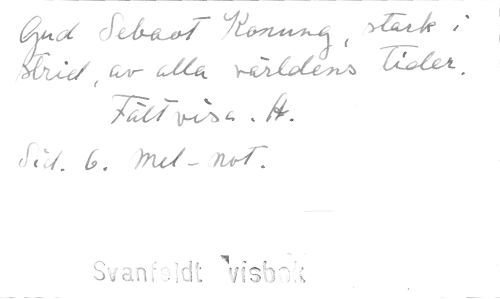 Gud Sebaot Konung, stark i
strid, av alla världens tider.
Fältvisa. A.
Sid. 6. Mel-not.
Svanfeldt visbok